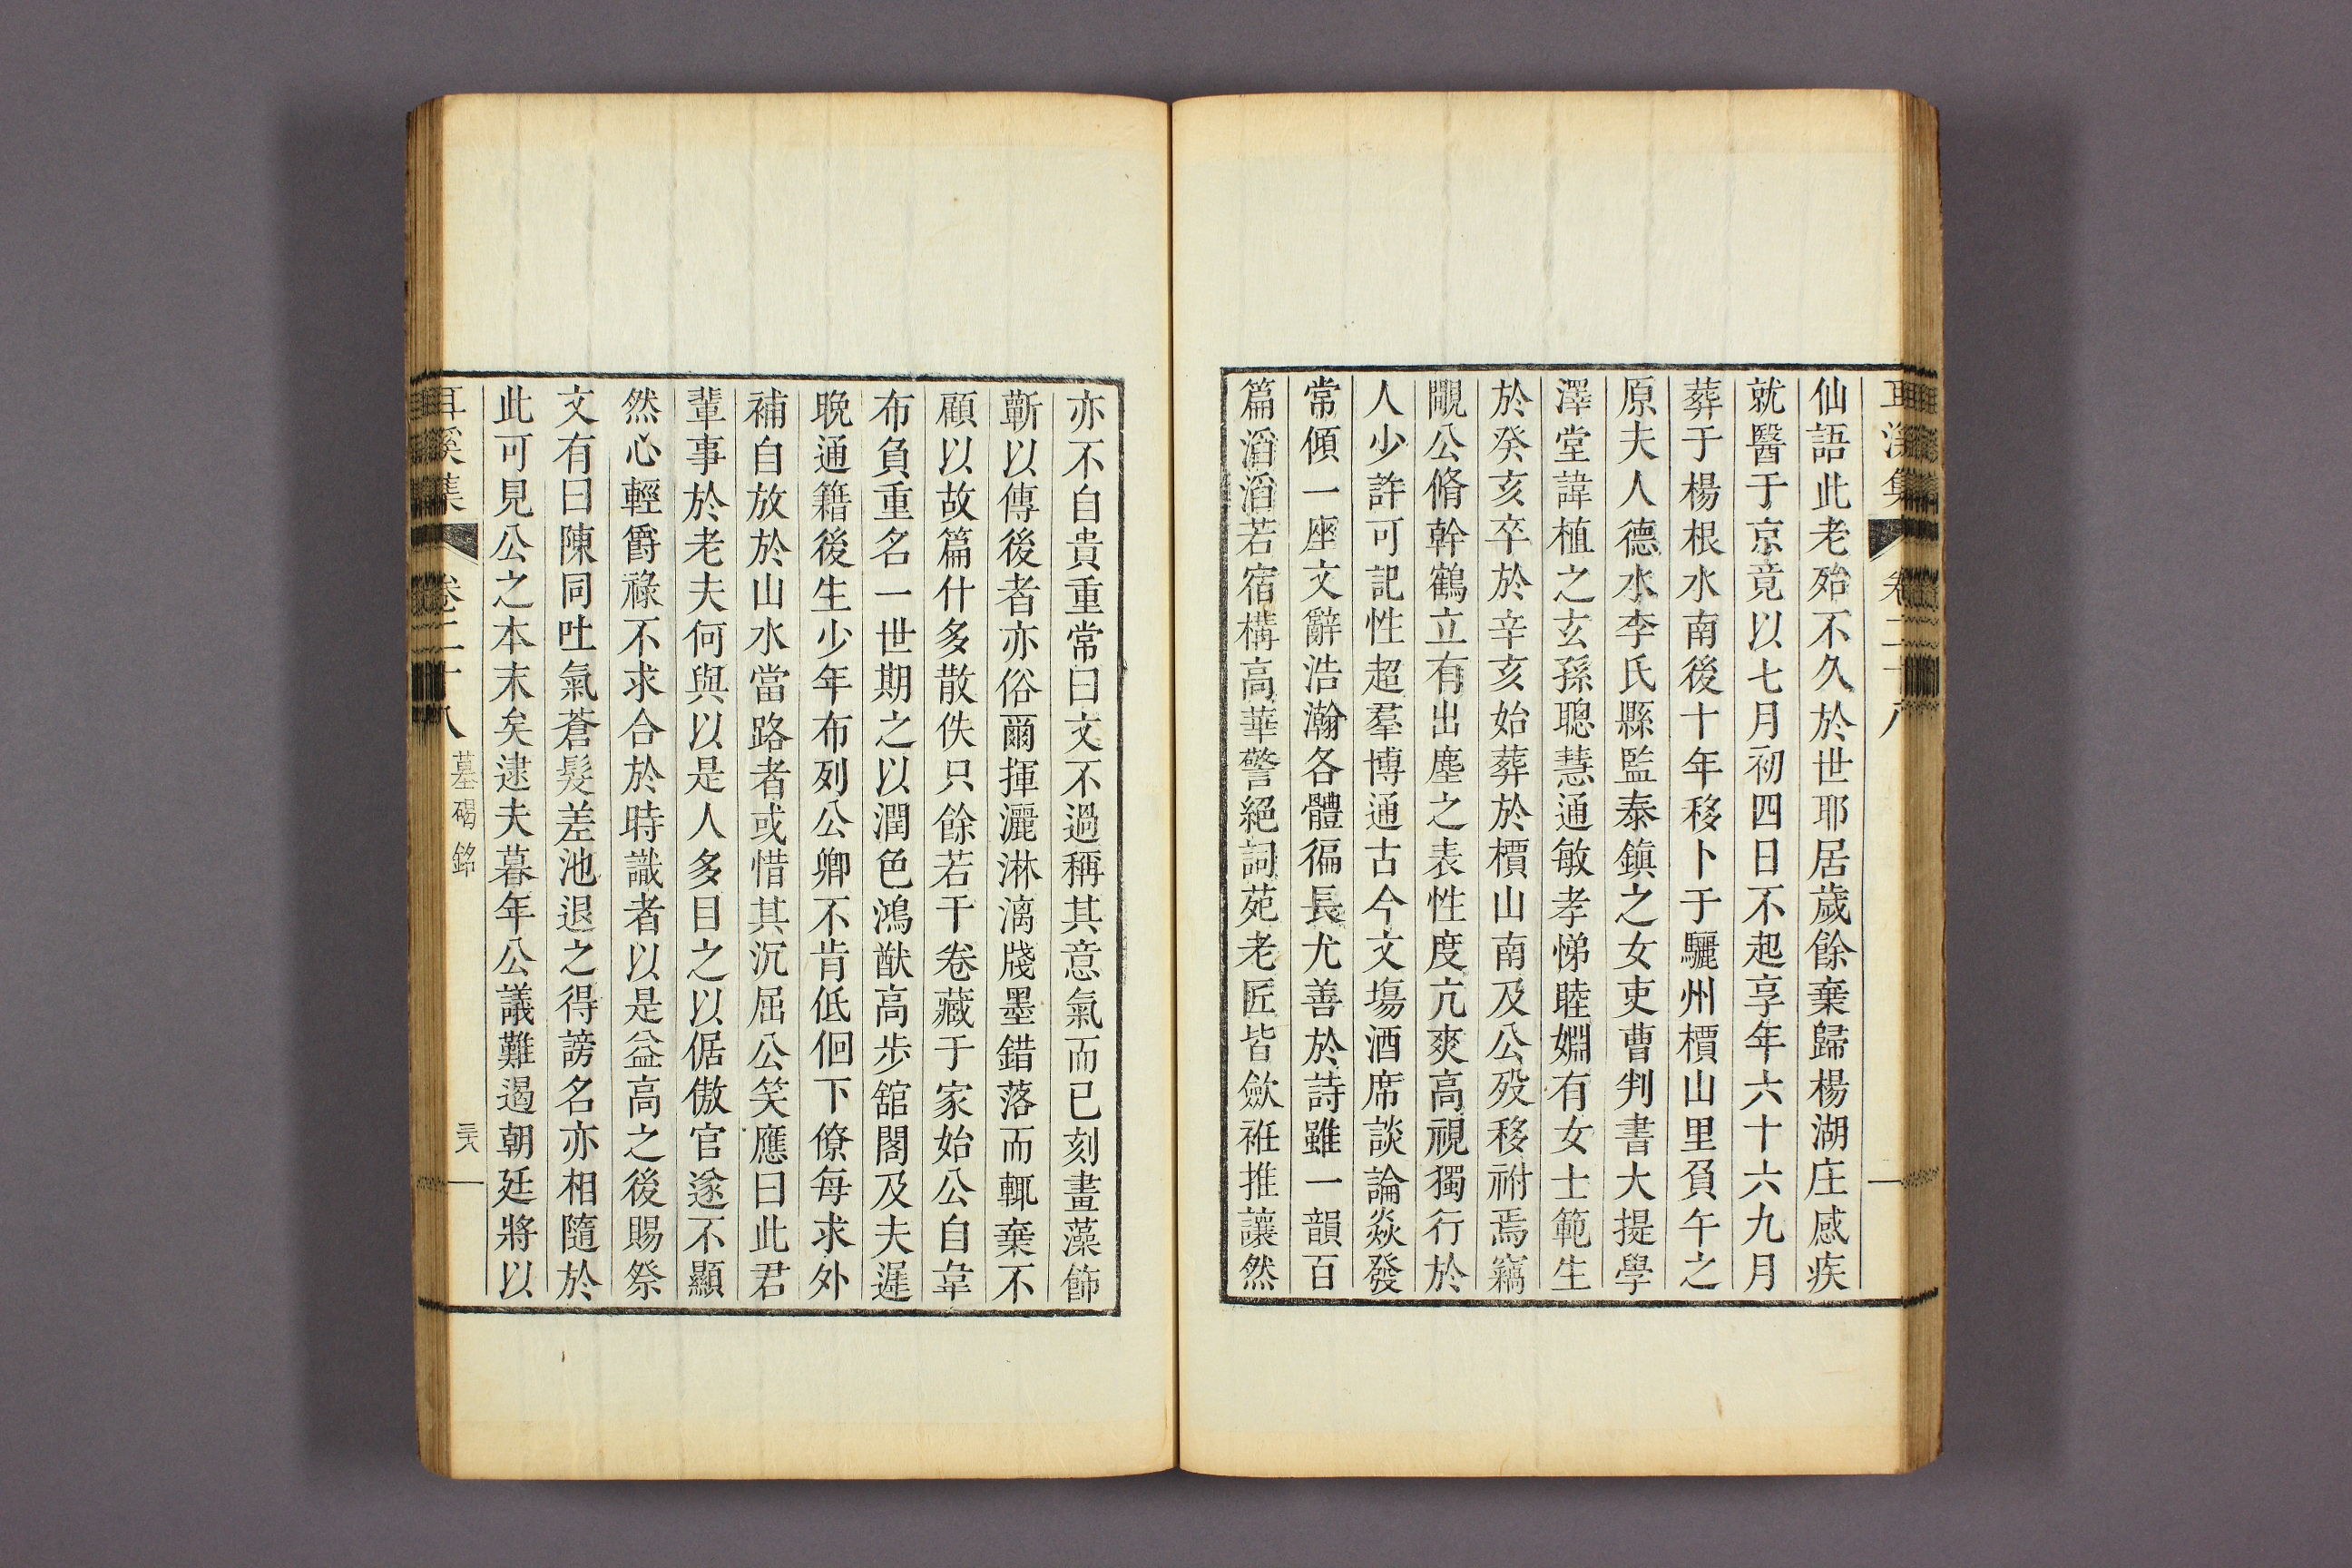 耳溪集 卷二十八
仙語此老殆不久於世耶居歲餘棄歸楊湖庄感疾
就醫于京竟以七月初四日不起享年六十六九月
葬于楊根水南後十年移卜于驪州檟山里負午之
原夫人德水李氏縣監泰鎭之女吏曹判書大提學
澤堂諱植之玄孫聰慧通敏孝悌睦婣有女士範生
於癸亥卒於辛亥始葬於檟山南及公歿移祔焉竊
覸公脩幹鶴立有出塵之表性度亢爽高視獨行於
人少許可記性超羣博通古今文塲酒席談論焱發
常傾一座文辭浩瀚各體徧長尤善於詩雖一韻百
篇滔滔若宿構高華警絕詞苑老匠皆歛袵推讓然
亦不自貴重常曰文不過稱其意氣而已刻畫藻飾
蘄以傳後者亦俗爾揮灑淋漓牋墨錯落而輒棄不
顧以故篇什多散佚只餘若干卷藏于家始公自韋
布負重名一世期之以潤色鴻猷高步舘閣及夫遲
晩通籍後生少年布列公卿不肯低佪下僚每求外
補自放於山水當路者或惜其沉屈公笑應曰此君
輩事於老夫何與以是人多目之以倨傲官遂不顯
然心輕爵祿不求合於時識者以是益高之後賜祭
文有曰陳同吐氣蒼髮差池退之得謗名亦相隨於
此可見公之本末矣逮夫暮年公議難遏朝廷將以
耳溪集 卷二十八 墓碣銘 三六